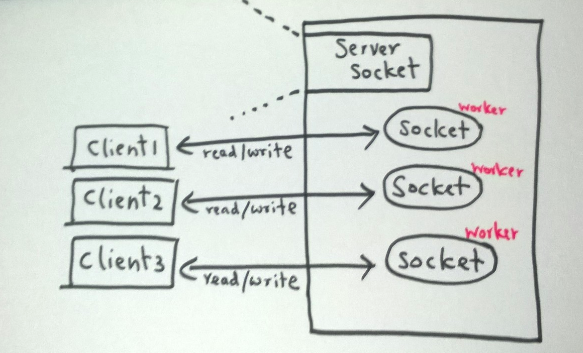 Server
Socket
worker
Client1
read/write
Socket
worker
Client2
read/write
Socket
worker
Client3
read/write
Socket